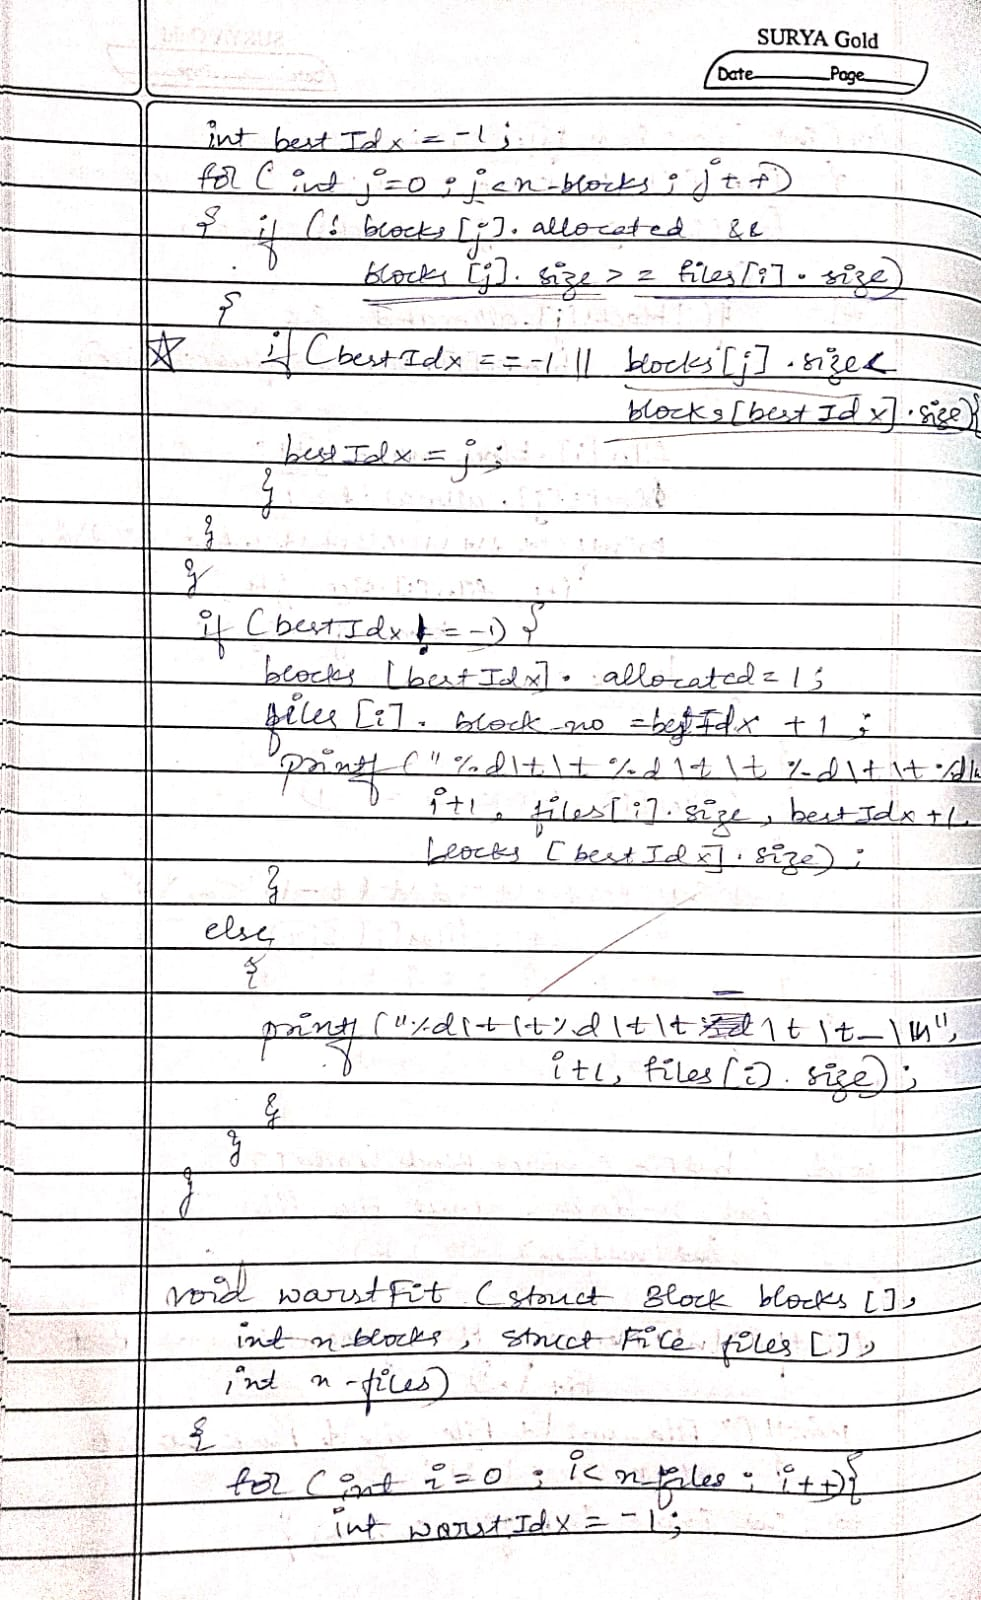 SURYA Gold
Date Page
int bestIdx = -1;
for ( int j=0 ; j<n-blocks ; j++)
{ if (! blocks [j]. allocated &&
blocks [j]. size >= files[i]. size)
{
☆ if (bestIdx == -1 || blocks[j].size<
blocks[bestIdx].size){
bestIdx = j;
}
}
}
if (bestIdx != -1) {
blocks [bestIdx]. allocated = 1;
files [i]. block_no = bestIdx + 1;
printf ("%d\t\t %d\t\t %d\t\t %d\n
i+1, files[i].size, bestIdx+1,
blocks [bestIdx].size);
}
else
{
printf ("%d\t\t%d\t\t - \t\t-\n",
i+1, files[i].size);
}
}
}
void warstFit (struct Block blocks [],
int n-blocks, struct File files [],
int n-files)
{
for (int i=0 ; i<n-files ; i++){
int worstIdx = -1;